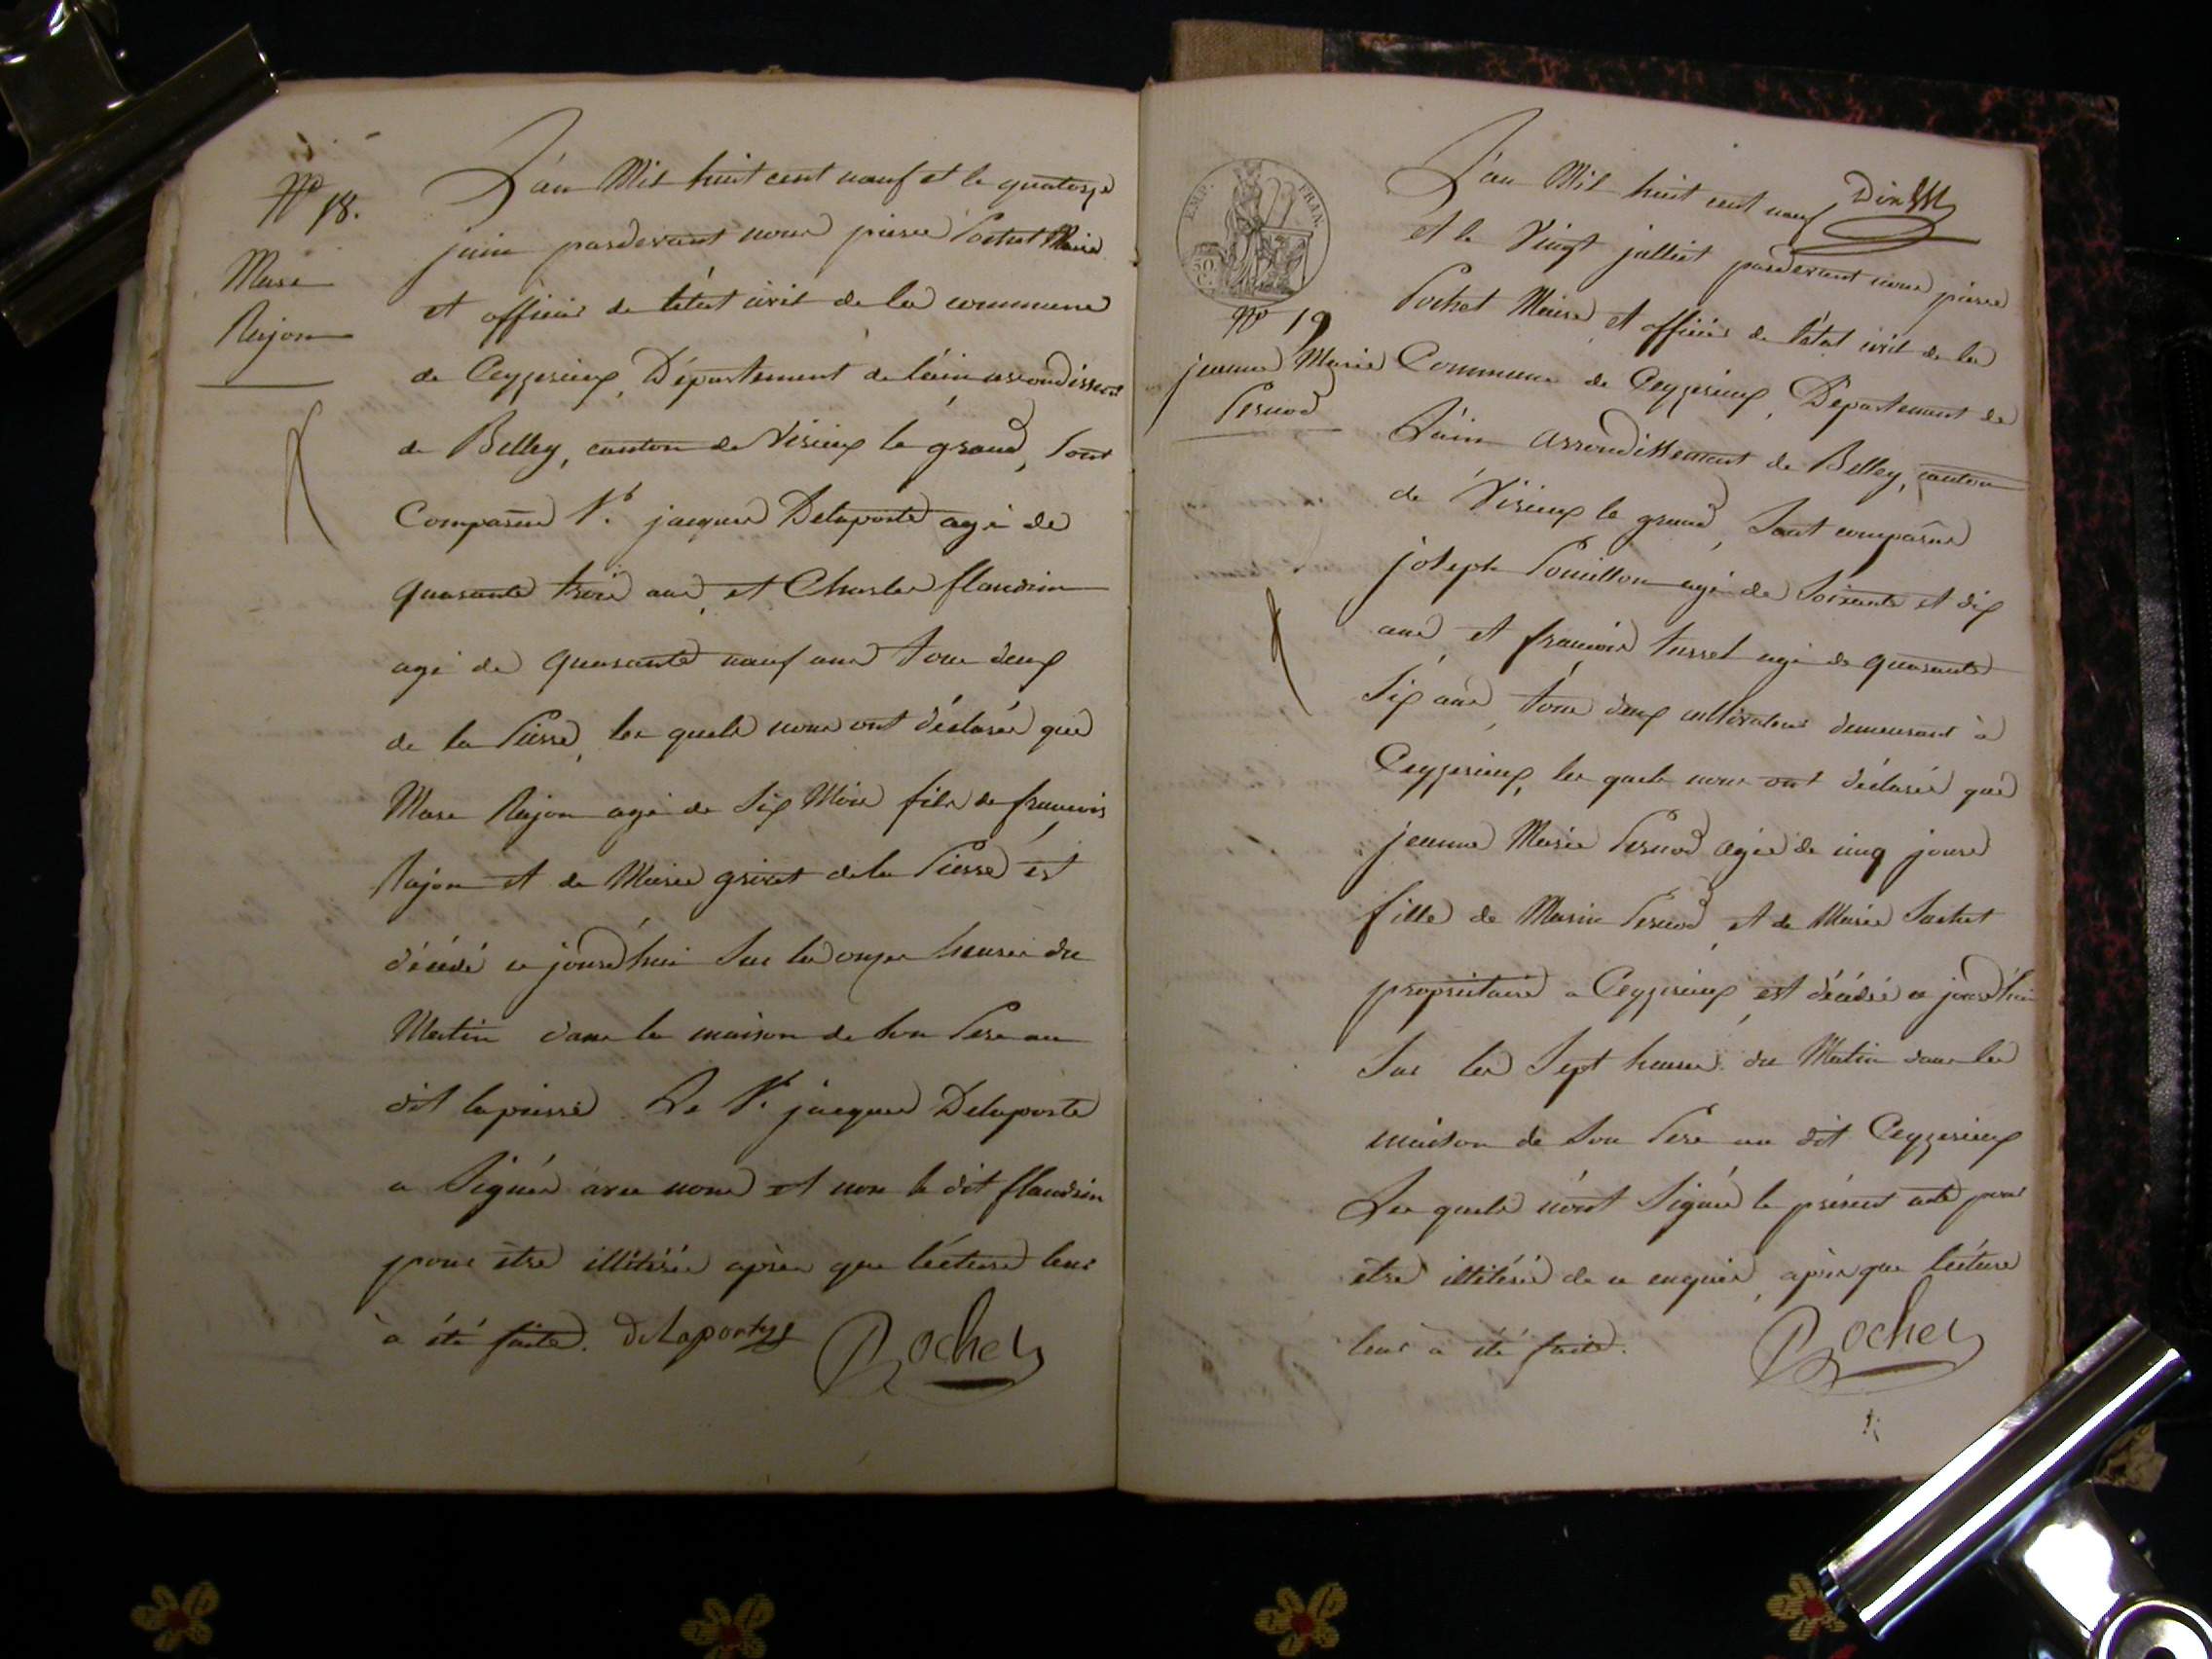 No 18.
Marc
Rajon
L'an Mil huit cent neuf et le quatorze
juin pardevant nous pierre Pochet Maire
et officier de l'état civil de la commune
de Ceyzerieux, Département de l'ain arrondissem
de Belley, canton de Virieux le grand, Sont
Comparus Sr. jacques Delaporte agé de
quarante trois ans, et Charles flandrin
agé de quarante neuf ans tous deux
de la Pierre, les quels nous ont déclarés que
Marc Rajon agé de Six Mois fils de francois
Rajon et de Marie grivet de la Pierre est
décédé ce jourd'hui Sur les onzes heures du
Matin dans la maison de Son Pere au
dit lapierre Le Sr. jacques Delaporte
a Signé avec nous et non le dit flandrin
pour être illitérés après que lécture leur
à été faite. Delaporte
Pochet
EMP. FRAN.
50 C.
No 19
jeanne Marie
Pernod
L'an Mil huit cent neuf
et le Vingt julliet pardevant nous pierre
Pochet Maire et officier de l'état civil de la
Commune de Ceyzerieux, Département de
L'ain arrondissement de Belley, canton
de Virieux le grand, Sont comparus
joseph Pouillon agé de Soixante et dix
ans et francois turrel agé de quarante
Six ans, tous deux cultivateurs demeurant à
Ceyzerieux, les quels nous ont déclarés que
jeanne Marie Pernod agée de cinq jours
fille de Marin Pernod, et de Marie
propriétaire a Ceyzerieux est décédée ce jourd'hui
Sur les Sept heures du Matin dans la
maison de Son Pere au dit Ceyzerieux
Les quels n'ont Signé le présent acte pour
être illitérés de ce enquis, après que lécture
leur à été faite.
Pochet